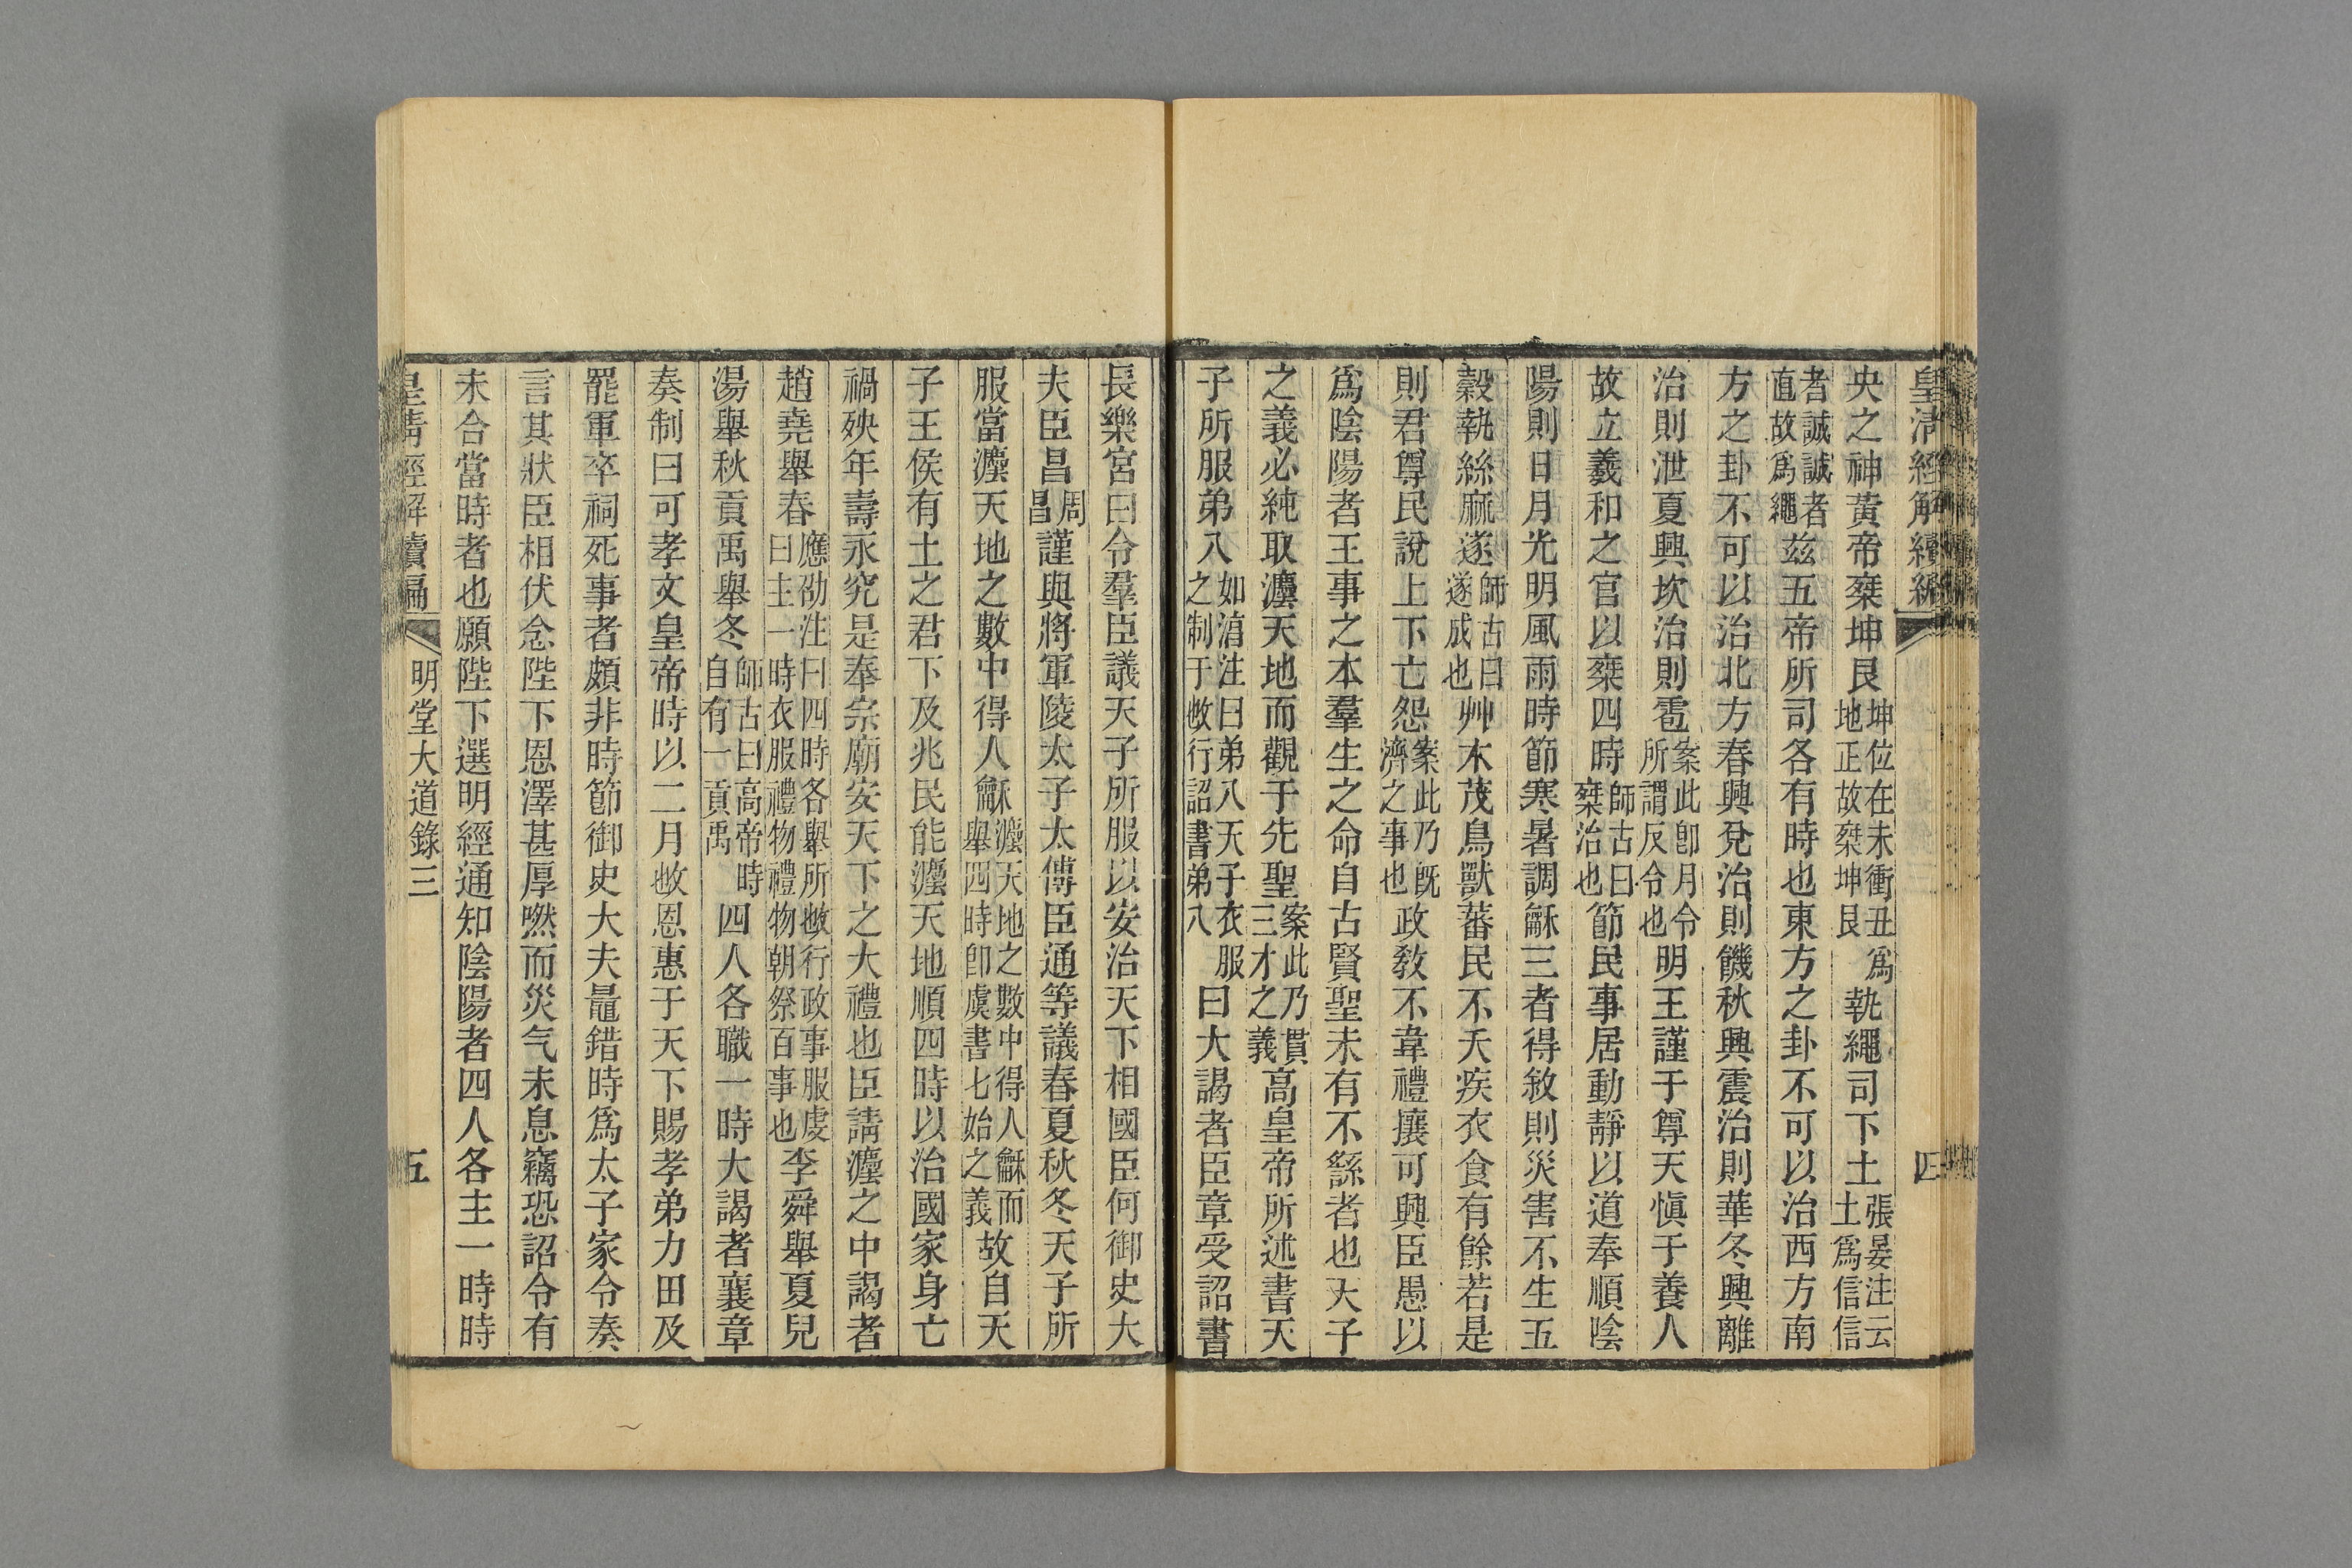 皇清經解續編
四
央之神黃帝椉坤艮坤位在未衝丑爲地正故椉坤艮執繩司下土張晏注云土爲信信
者誠誠者直故爲繩玆五帝所司各有時也東方之卦不可以治西方南
方之卦不可以治北方春興兌治則饑秋興震治則華冬興離
治則泄夏興坎治則雹案此卽月令所謂反令也明王謹于尊天愼于養人
故立羲和之官以椉四時師古曰椉治也節民事居動靜以道奉順陰
陽則日月光明風雨時節寒暑調龢三者得敘則災害不生五
穀執絲麻遂師古曰遂成也艸木茂鳥獸蕃民不夭疾衣食有餘若是
則君尊民說上下亡怨案此乃旣濟之事也政敎不韋禮攘可興臣愚以
爲陰陽者王事之本羣生之命自古賢聖未有不繇者也天子
之義必純取灋天地而觀于先聖案此乃貫三才之義高皇帝所述書天
子所服弟八如淳注曰弟八天子衣服之制于敀行詔書弟八曰大謁者臣章受詔書
長樂宮曰令羣臣議天子所服以安治天下相國臣何御史大
夫臣昌周昌謹與將軍陵太子太傅臣通等議春夏秋冬天子所
服當灋天地之數中得人龢灋天地之數中得人龢而舉四時卽虞書七始之義故自天
子王侯有土之君下及兆民能灋天地順四時以治國家身亡
禍殃年壽永究是奉宗廟安天下之大禮也臣請灋之中謁者
趙堯舉春應劭注曰四時各舉所敀行政事服虔曰主一時衣服禮物禮物朝祭百事也李舜舉夏兒
湯舉秋貢禹舉冬師古曰高帝時自有一貢禹四人各職一時大謁者襄章
奏制曰可孝文皇帝時以二月敀恩惠于天下賜孝弟力田及
罷軍卒祠死事者頗非時節御史大夫鼂錯時爲太子家令奏
言其狀臣相伏念陛下恩澤甚厚㷼而災气未息竊恐詔令有
未合當時者也願陛下選明經通知陰陽者四人各主一時時
皇清經解續編
明堂大道錄三
五